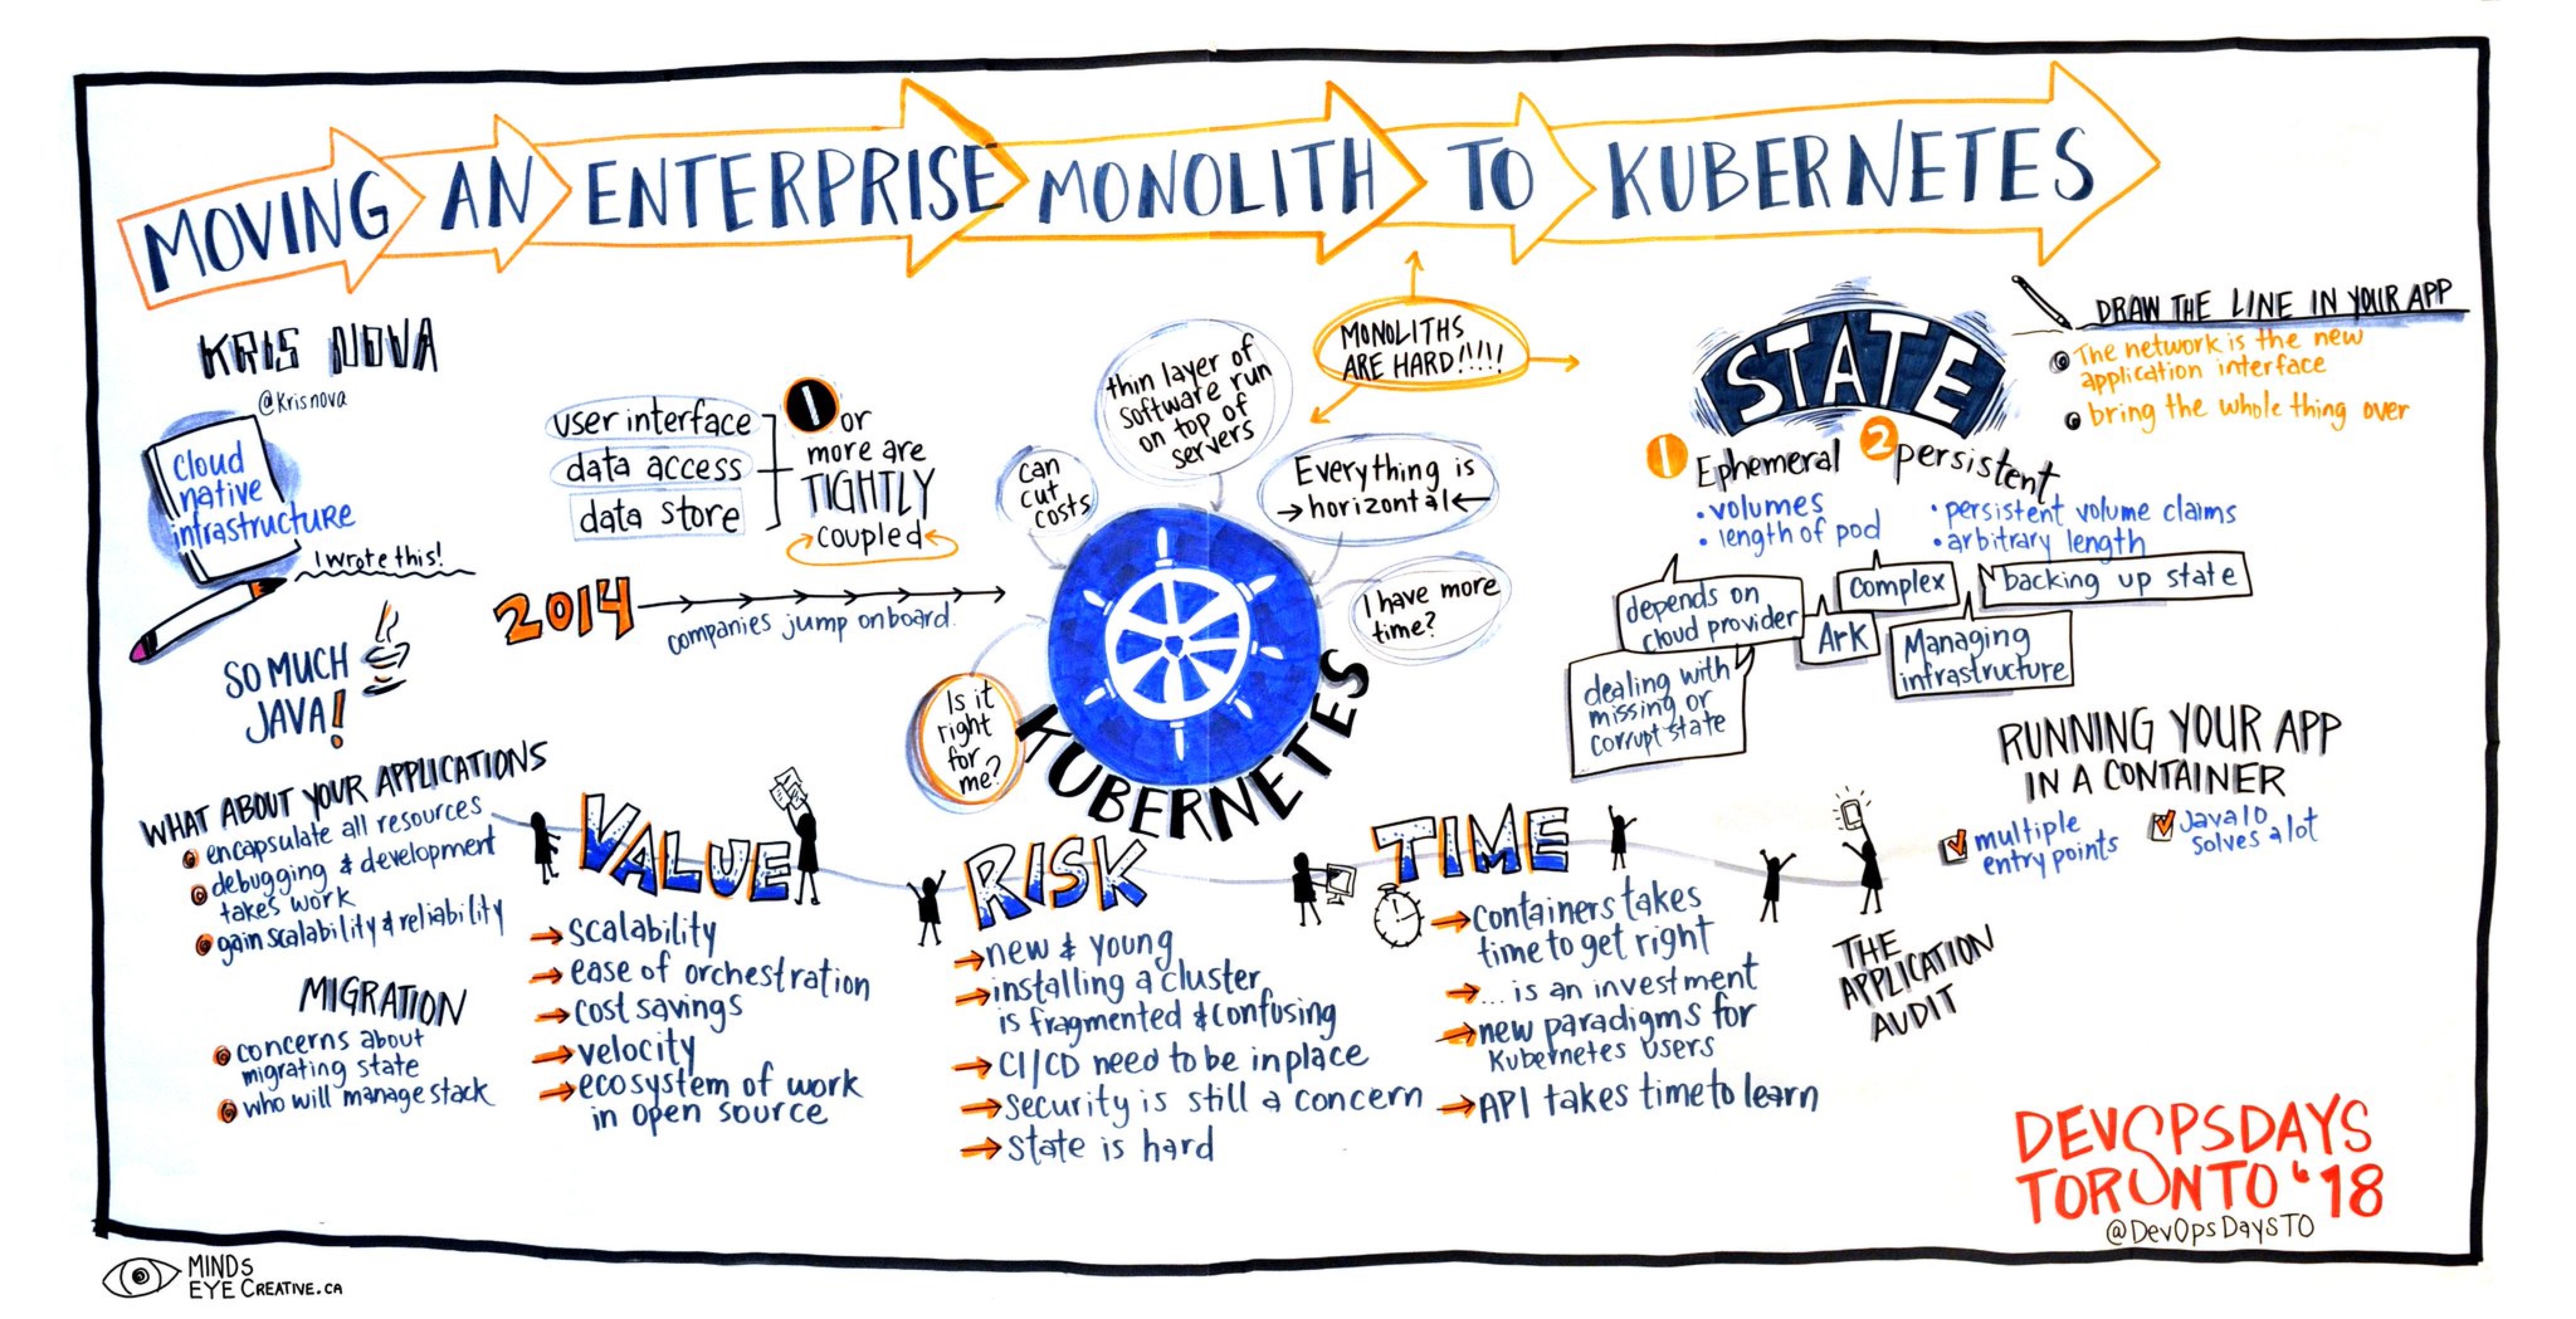 MOVING AN ENTERPRISE MONOLITH TO KUBERNETES
KRIS NOVA
@Krisnova
Cloud
native
infrastructure
I wrote this!
SO MUCH
JAVA!
user interface
data access
data store
1 or
more are
TIGHTLY
coupled
2014
companies jump onboard.
can
cut
costs
thin layer of
software run
on top of
servers
MONOLITHS
ARE HARD!!!!!
Everything is
horizontal
I have more
time?
Is it
right
for
me?
KUBERNETES
STATE
1 Ephemeral
• volumes
• length of pod
2 persistent
• persistent volume claims
• arbitrary length
depends on
cloud provider
complex
backing up state
Ark
Managing
infrastructure
dealing with
missing or
corrupt state
DRAW THE LINE IN YOUR APP
The network is the new
application interface
bring the whole thing over
RUNNING YOUR APP
IN A CONTAINER
multiple
entry points
Java 10
solves a lot
WHAT ABOUT YOUR APPLICATIONS
encapsulate all resources
debugging & development
takes work
gain scalability & reliability
MIGRATION
concerns about
migrating state
who will manage stack
VALUE
scalability
ease of orchestration
cost savings
velocity
ecosystem of work
in open source
RISK
new & young
installing a cluster
is fragmented & confusing
CI/CD need to be in place
Security is still a concern
state is hard
TIME
containers takes
time to get right
... is an investment
new paradigms for
Kubernetes users
API takes time to learn
THE
APPLICATION
AUDIT
DEVOPSDAYS
TORONTO '18
@DevOpsDaysTO
MINDS
EYE CREATIVE.CA